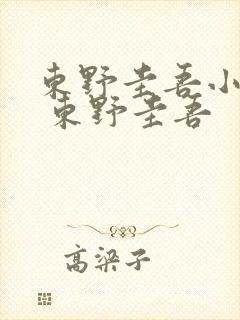 東野圭吾小
東野圭吾
高梁子